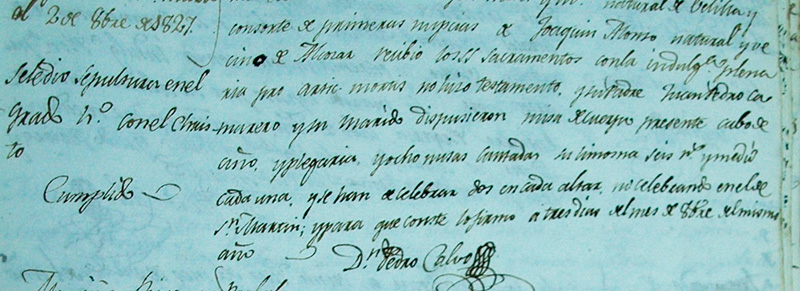 el 2 de 8bre de 1827.
Se le dio sepultura en el
grado n.º con el Chris
to
Cumplido
natural de Velilla y
consorte de primeras nupcias de Joaquin Alonso natural y ve
cino de Morar recibio los SS sacramentos con la indulg.ª plena
ria pro artic. mortis no hizo testamento, y su Padre Juan Pedro Ca
marero y su Marido dispusieron misa de cuerpo presente cabo de
año, y plegaria, y ocho misas cantadas su limosna seis r.s y medio
cada una, y se han de celebrar dos en cada altar, no celebrando en el de
S.n Martin; y para que conste lo firmo a tres dias del mes de 8bre del mismo
año
D.n Pedro Calvo